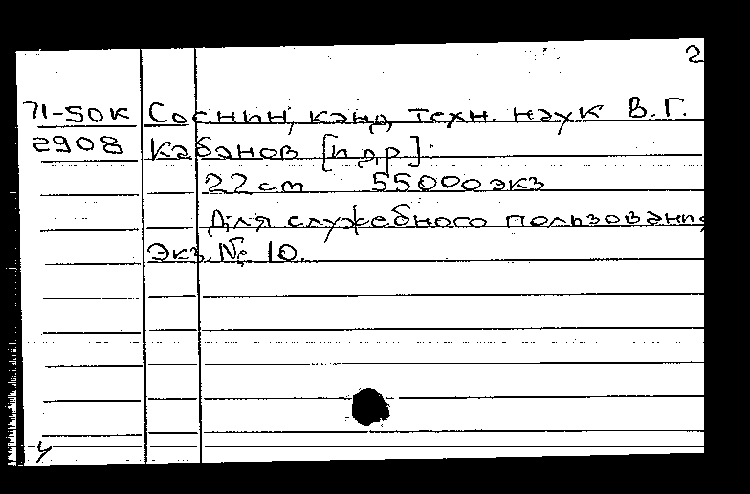 2
71-50к Соснин, канд. техн. наук В.Г.
2908 Кабанов [и др]:
22 cm 55000 экз
Для служебного пользования
Экз. № 10.